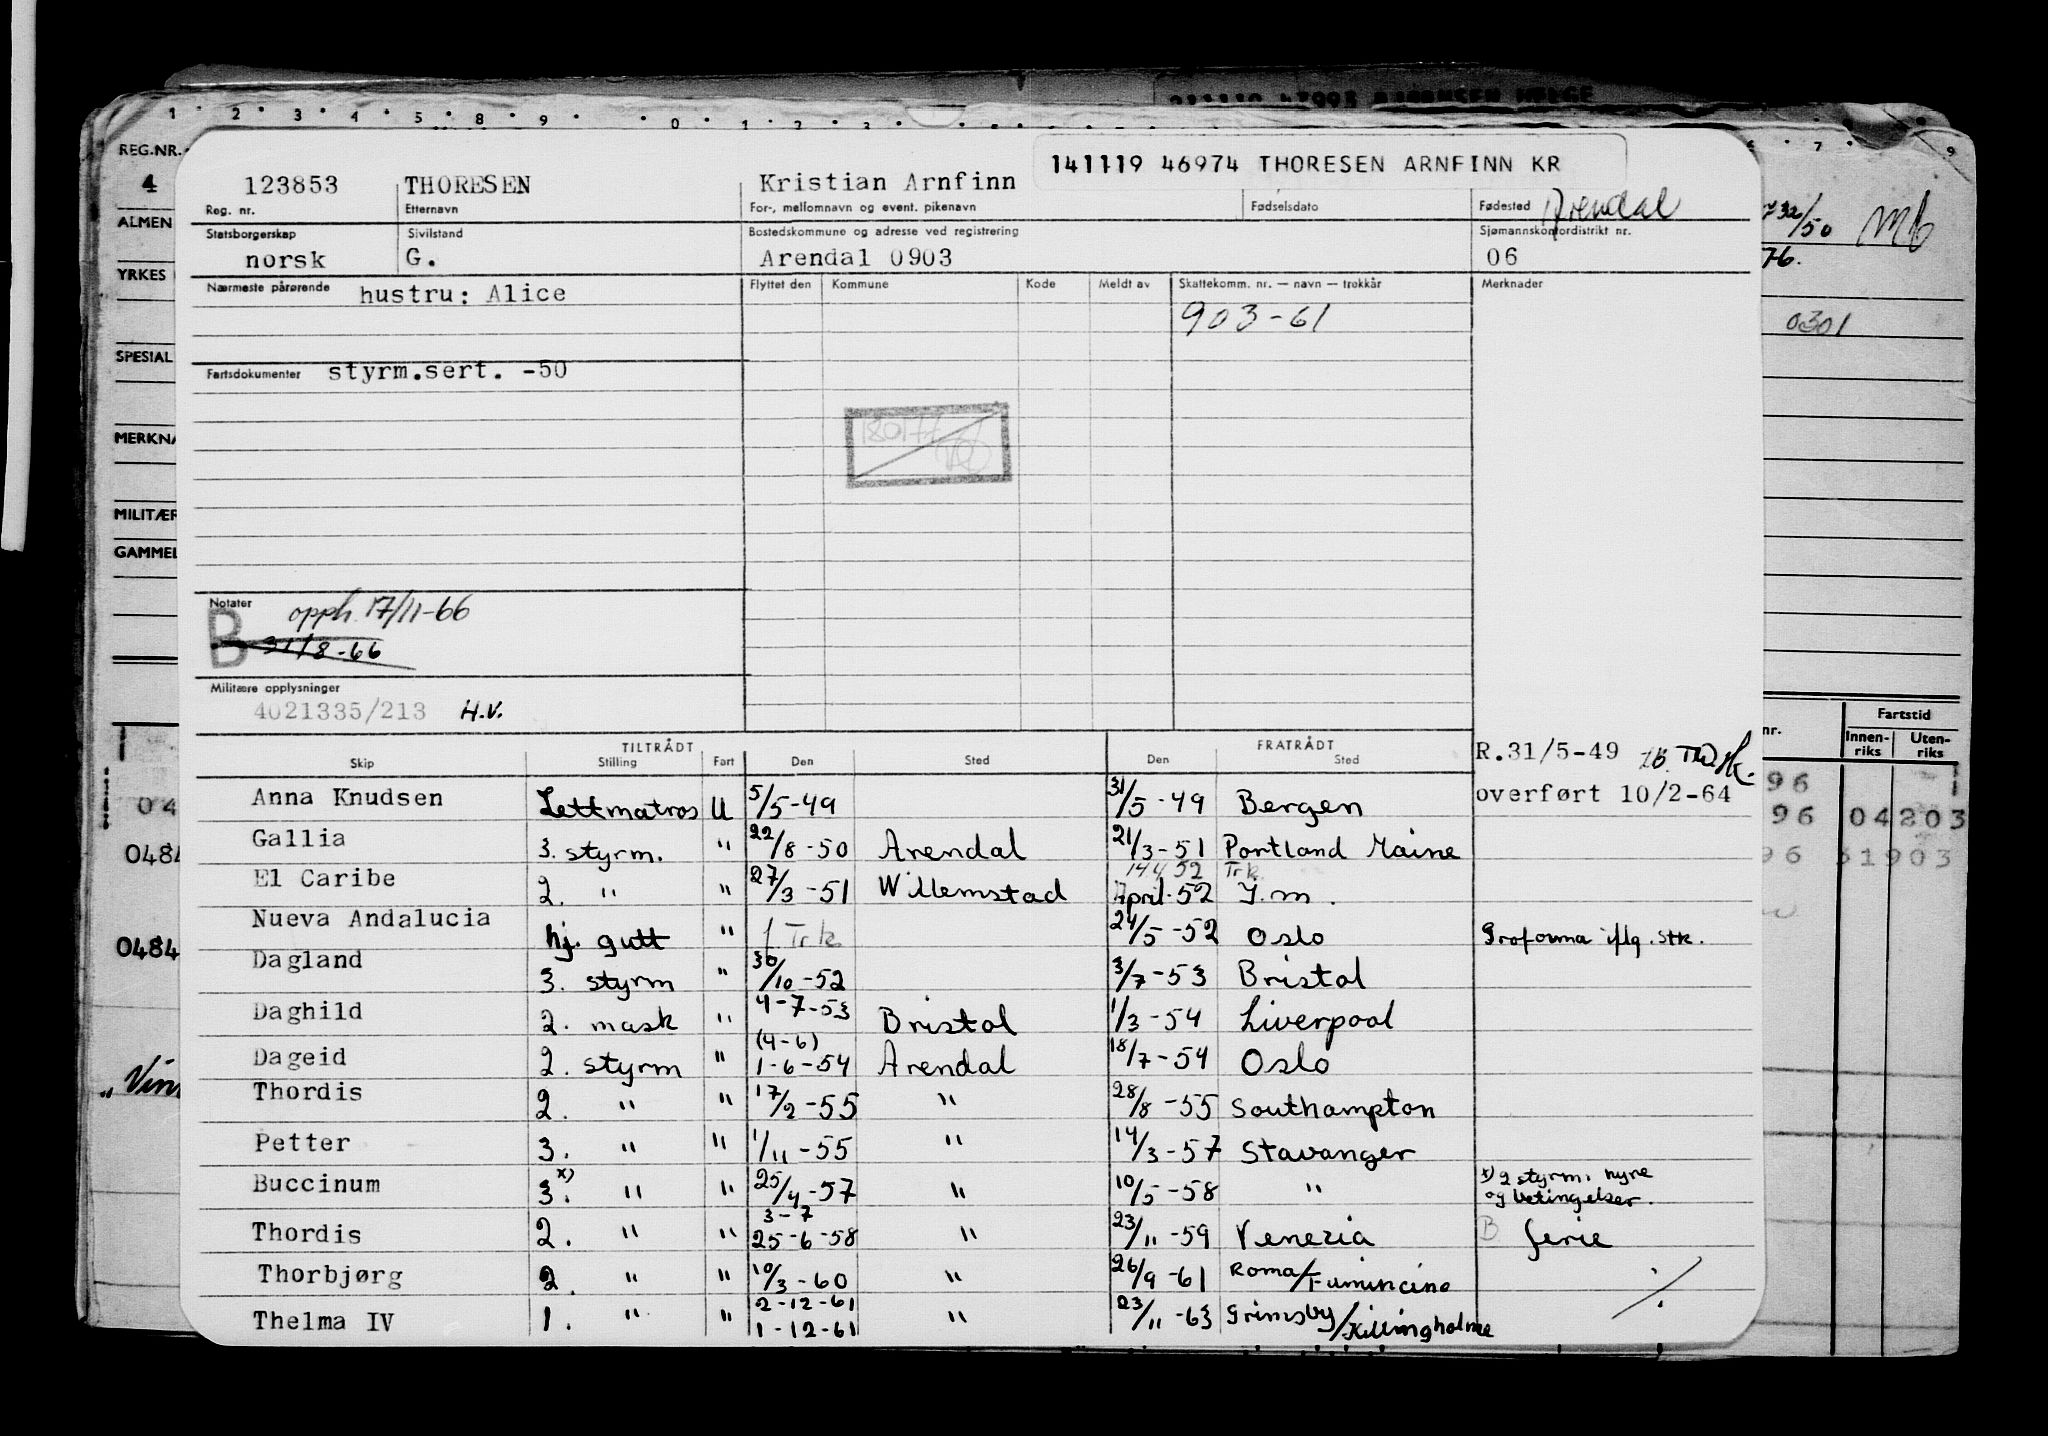 REG.NR.
4
ALMEN
YRKES
SPESIAL
MERKNA
MILITÆR
GAMMEL
141119 46974 THORESEN ARNFINN KR
123853 THORESEN Kristian Arnfinn Arendal
Reg. nr. Etternavn For-, mellomnavn og event. pikenavn Fødselsdato Fødested
Statsborgerskap Sivilstand Bostedskommune og adresse ved registrering Sjømannskontordistrikt nr.
norsk G. Arendal 0903 06
Nærmeste pårørende hustru: Alice Flyttet den Kommune Kode Meldt av Skattekomm. nr. — navn — trekkår Merknader
903-61
Fartsdokumenter styrm.sert. -50
Notater opph. 17/11-66
B 31/8-66
Militære opplysninger
4021335/213 H.V.
TILTRÅDT FRATRÅDT
Skip Stilling Fart Den Sted Den Sted
R.31/5-49
overført 10/2-64
Anna Knudsen Lettmatros U 5/5-49 31/5-49 Bergen
Gallia 3. styrm. " 22/8-50 Arendal 21/3-51 Portland Maine
14.4.52 Trk.
El Caribe 2. " " 27/3-51 Willemstad April-52 I.m.
Nueva Andalucia hj. gutt " Trk. 24/5-52 Oslo Proforma iflg. stk.
Dagland 3. styrm " 30/10-52 3/7-53 Bristol
Daghild 2. mask " 4-7-53 Bristol 1/3-54 Liverpool
Dageid 2. styrm " (4-6) 1-6-54 Arendal 18/7-54 Oslo
Thordis 2. " " 17/2-55 " 28/8-55 Southampton
Petter 3. " " 1/11-55 " 14/3-57 Stavanger
Buccinum 3. x) " " 25/4-57 " 10/5-58 " x) 2 styrm. hyre og betingelser.
Thordis 2. " " 3-7 25-6-58 " 23/11-59 Venezia B ferie
Thorbjørg 2. " " 10/3-60 " 26/9-61 Roma/Fumincino
Thelma IV 1. " " 2-12-61 1-12-61 " 23/11-63 Grimsby/Killingholme
./.
0301
Fartstid
nr. Innen-riks Uten-riks
96
96 04203
0484
0484